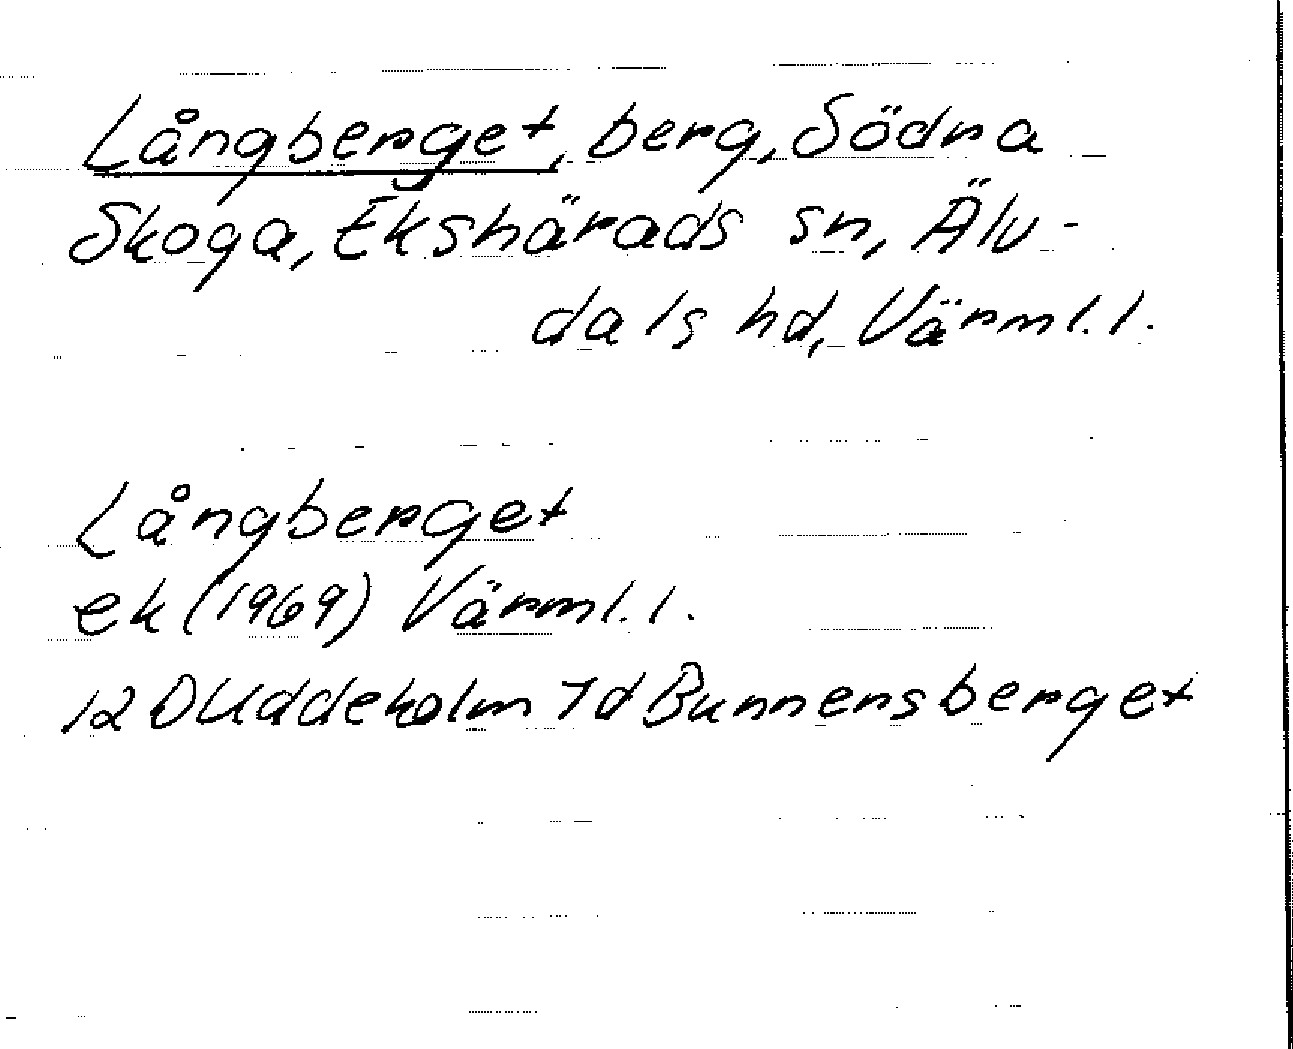 Långberget, berg, Södra
Skoga, Ekshärads sn, Älv-
dals hd, Värml. l.
Långberget
ek (1969) Värml. l.
12 D Uddeholm 7d Bunnensberget